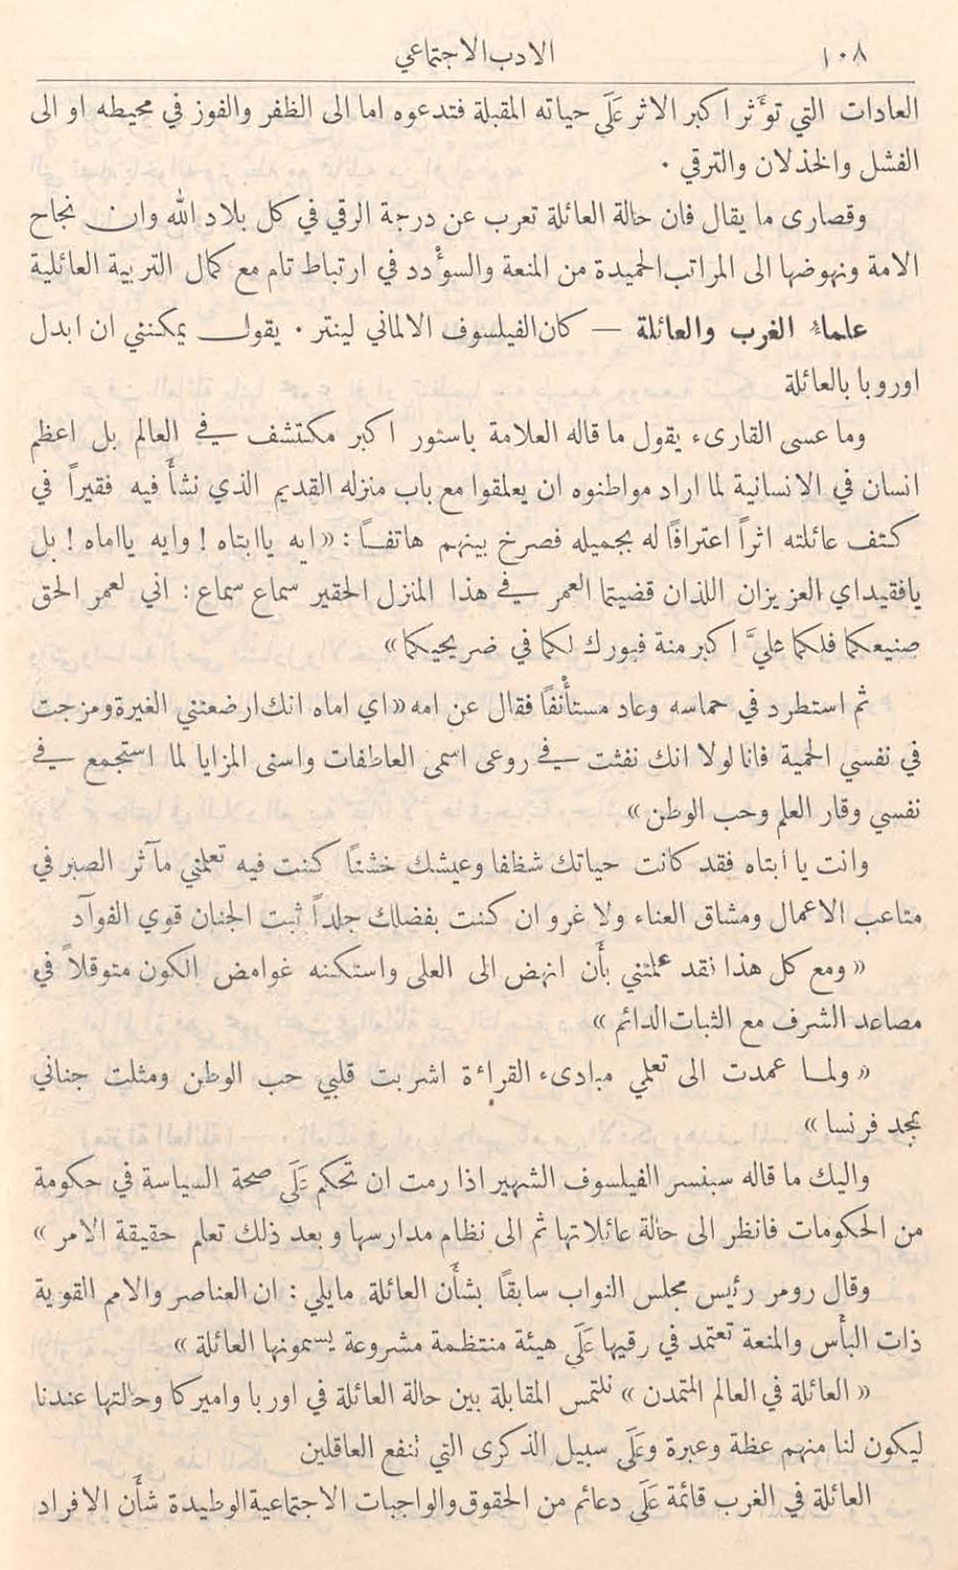 ١٠٨
الادب الاجتماعي
العادات التي تؤَثر اكبر الاثر عَلَى حياته المقبلة فتدعوه اما الى الظفر والفوز في محيطه او الى
الفشل والخذلان والترقي ٠
وقصارى ما يقال فان حالة العائلة تعرب عن درجة الرقي في كل بلاد الله وان نجاح
الامة ونهوضها الى المراتب الحميدة من المنعة والسوؤْدد في ارتباط تام مع كمال التربية العائلية
علماء الغرب والعائلة — كان الفيلسوف الالماني لينتر ٠ يقول يمكنني ان ابدل
اوروبا بالعائلة
وما عسى القارىء يقول ما قاله العلامة باستور اكبر مكتشف في العالم بل اعظم
انسان في الانسانية لما اراد مواطنوه ان يعلمقوا مع باب منزله القديم الذي نشأَ فيه فقيراً في
كتف عائلته اثراً اعترافًا له بجميله فصرخ بينهم هاتفًا : « ايه ياابتاه ! وايه يااماه ! بل
يافقيداي العزيزان اللذان قضيتما العمر في هذا المنزل الحقير سماع سماع : اني لعمر الحق
صنيعكما فلكما عليَّ اكبر منة فبورك لكما في ضريحيكما »
ثم استطرد في حماسه وعاد مستأْنفًا فقال عن امه « اي اماه انك ارضعتني الغيرة ومزجت
في نفسي الحمية فانا لولا انك نفثت في روعى اسمى العاطفات واسنى المزايا لما استجمع في
نفسي وقار العلم وحب الوطن »
وانت يا ابتاه فقد كانت حياتك شظفا وعيشك خشنًا كنت فيه تعلمني مآثر الصبر في
متاعب الاعمال ومشاق العناء ولا غرو ان كنت بفضلك جلداً ثبت الجنان قوي الفوآد
« ومع كل هذا نقد علمتني بأَن انهض الى العلى واستكنه غوامض الكون متوقلاً في
مصاعد الشرف مع الثبات الدائم »
« ولما عمدت الى تعلمي مبادىء القراءة اشربت قلبي حب الوطن ومثلت جناني
بمجد فرنسا »
واليك ما قاله سبنسر الفيلسوف الشهير اذا رمت ان تحكم عَلَى صحة السياسة في حكومة
من الحكومات فانظر الى حالة عائلاتها ثم الى نظام مدارسها و بعد ذلك تعلم حقيقة الامر »
وقال رومر رئيس مجلس النواب سابقًا بشأَن العائلة مايلي : ان العناصر والامم القوية
ذات البأْس والمنعة تعتمد في رقيها عَلَى هيئة منتظمة مشروعة يسمونها العائلة »
« العائلة في العالم المتمدن » نلتمس المقابلة بين حالة العائلة في اوربا واميركا وحالتها عندنا
ليكون لنا منهم عظة وعبرة وعَلَى سبيل الذكرى التي تنفع العاقلين
العائلة في الغرب قائمة عَلَى دعائم من الحقوق والواجبات الاجتماعية الوطيدة شأَن الافراد